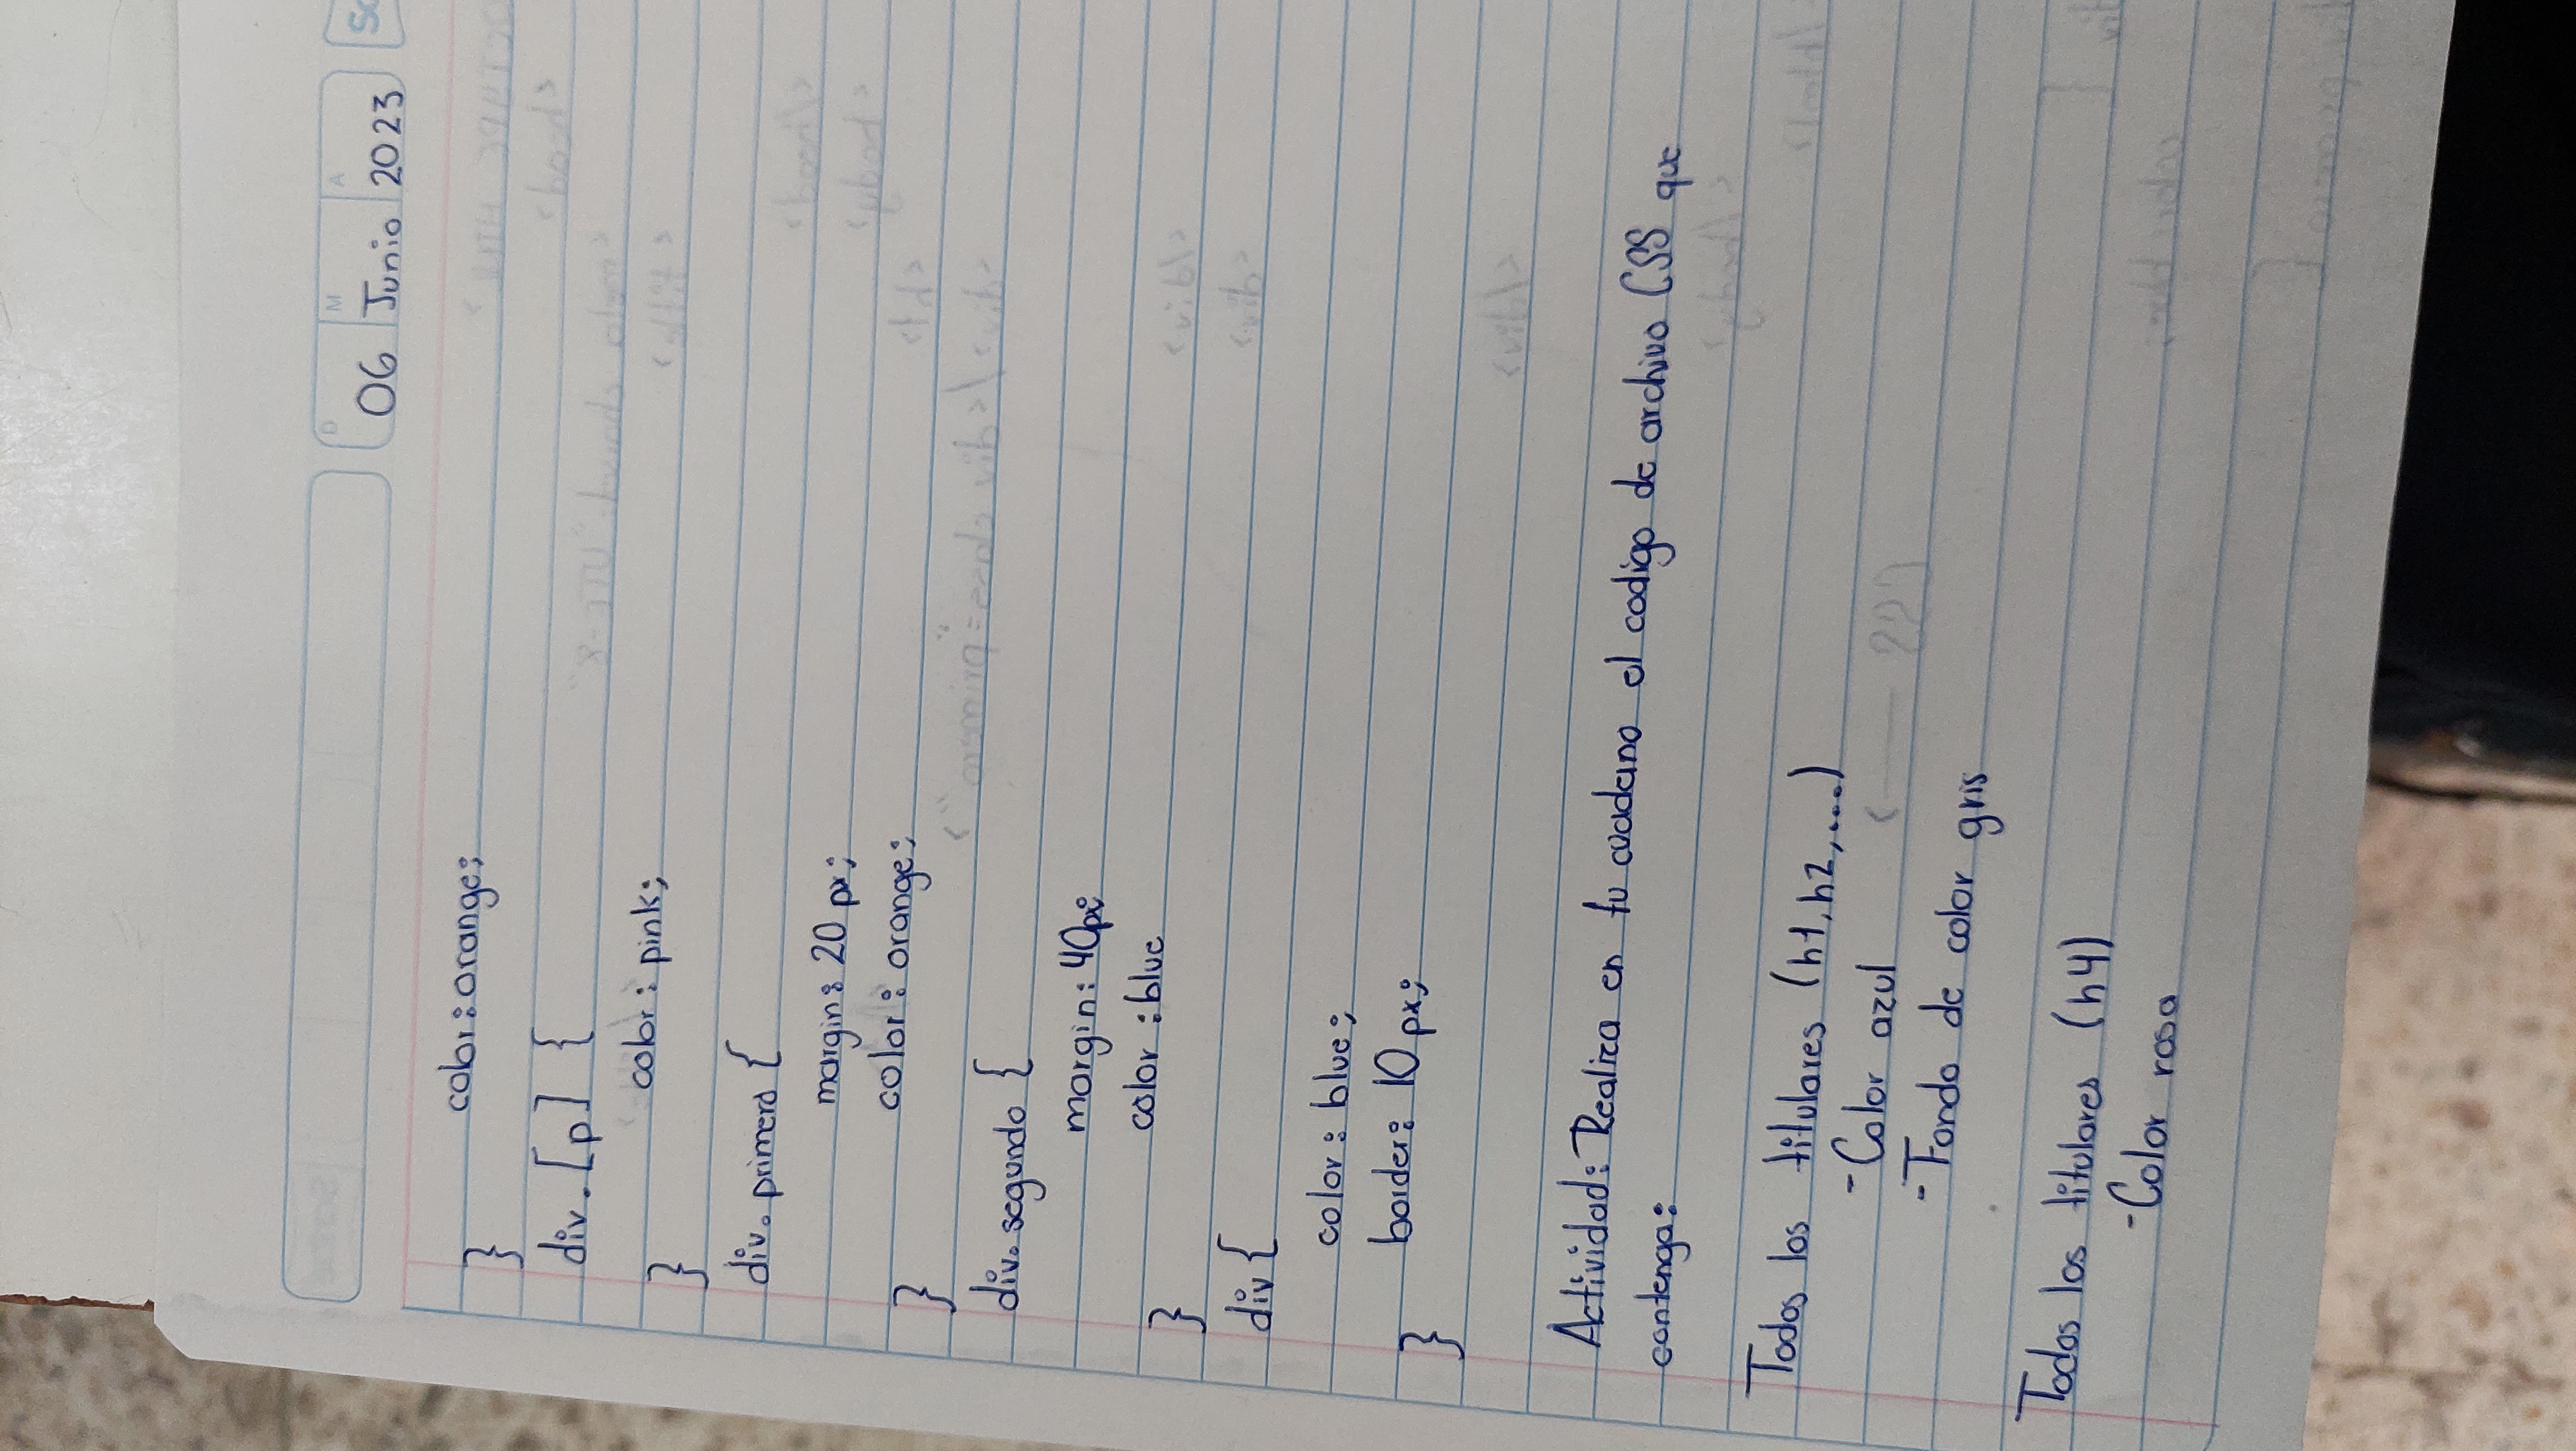 D M A
06 Junio 2023
color: orange;
}
div.[p] {
color: pink;
}
div.primero {
margin: 20 px;
color: orange;
}
div.segundo {
margin: 40px;
color: blue
}
div {
color: blue;
border: 10 px;
}
Actividad: Realiza en tu cuaderno el codigo de archivo CSS que
contenga:
Todos los titulares (h1, h2, ....)
-Color azul
-Fondo de color gris
Todos los titulares (h4)
-Color rosa